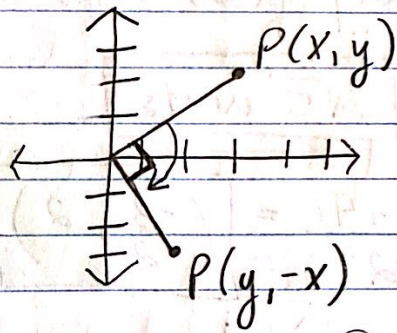 P(x, y)
P(y, -x)